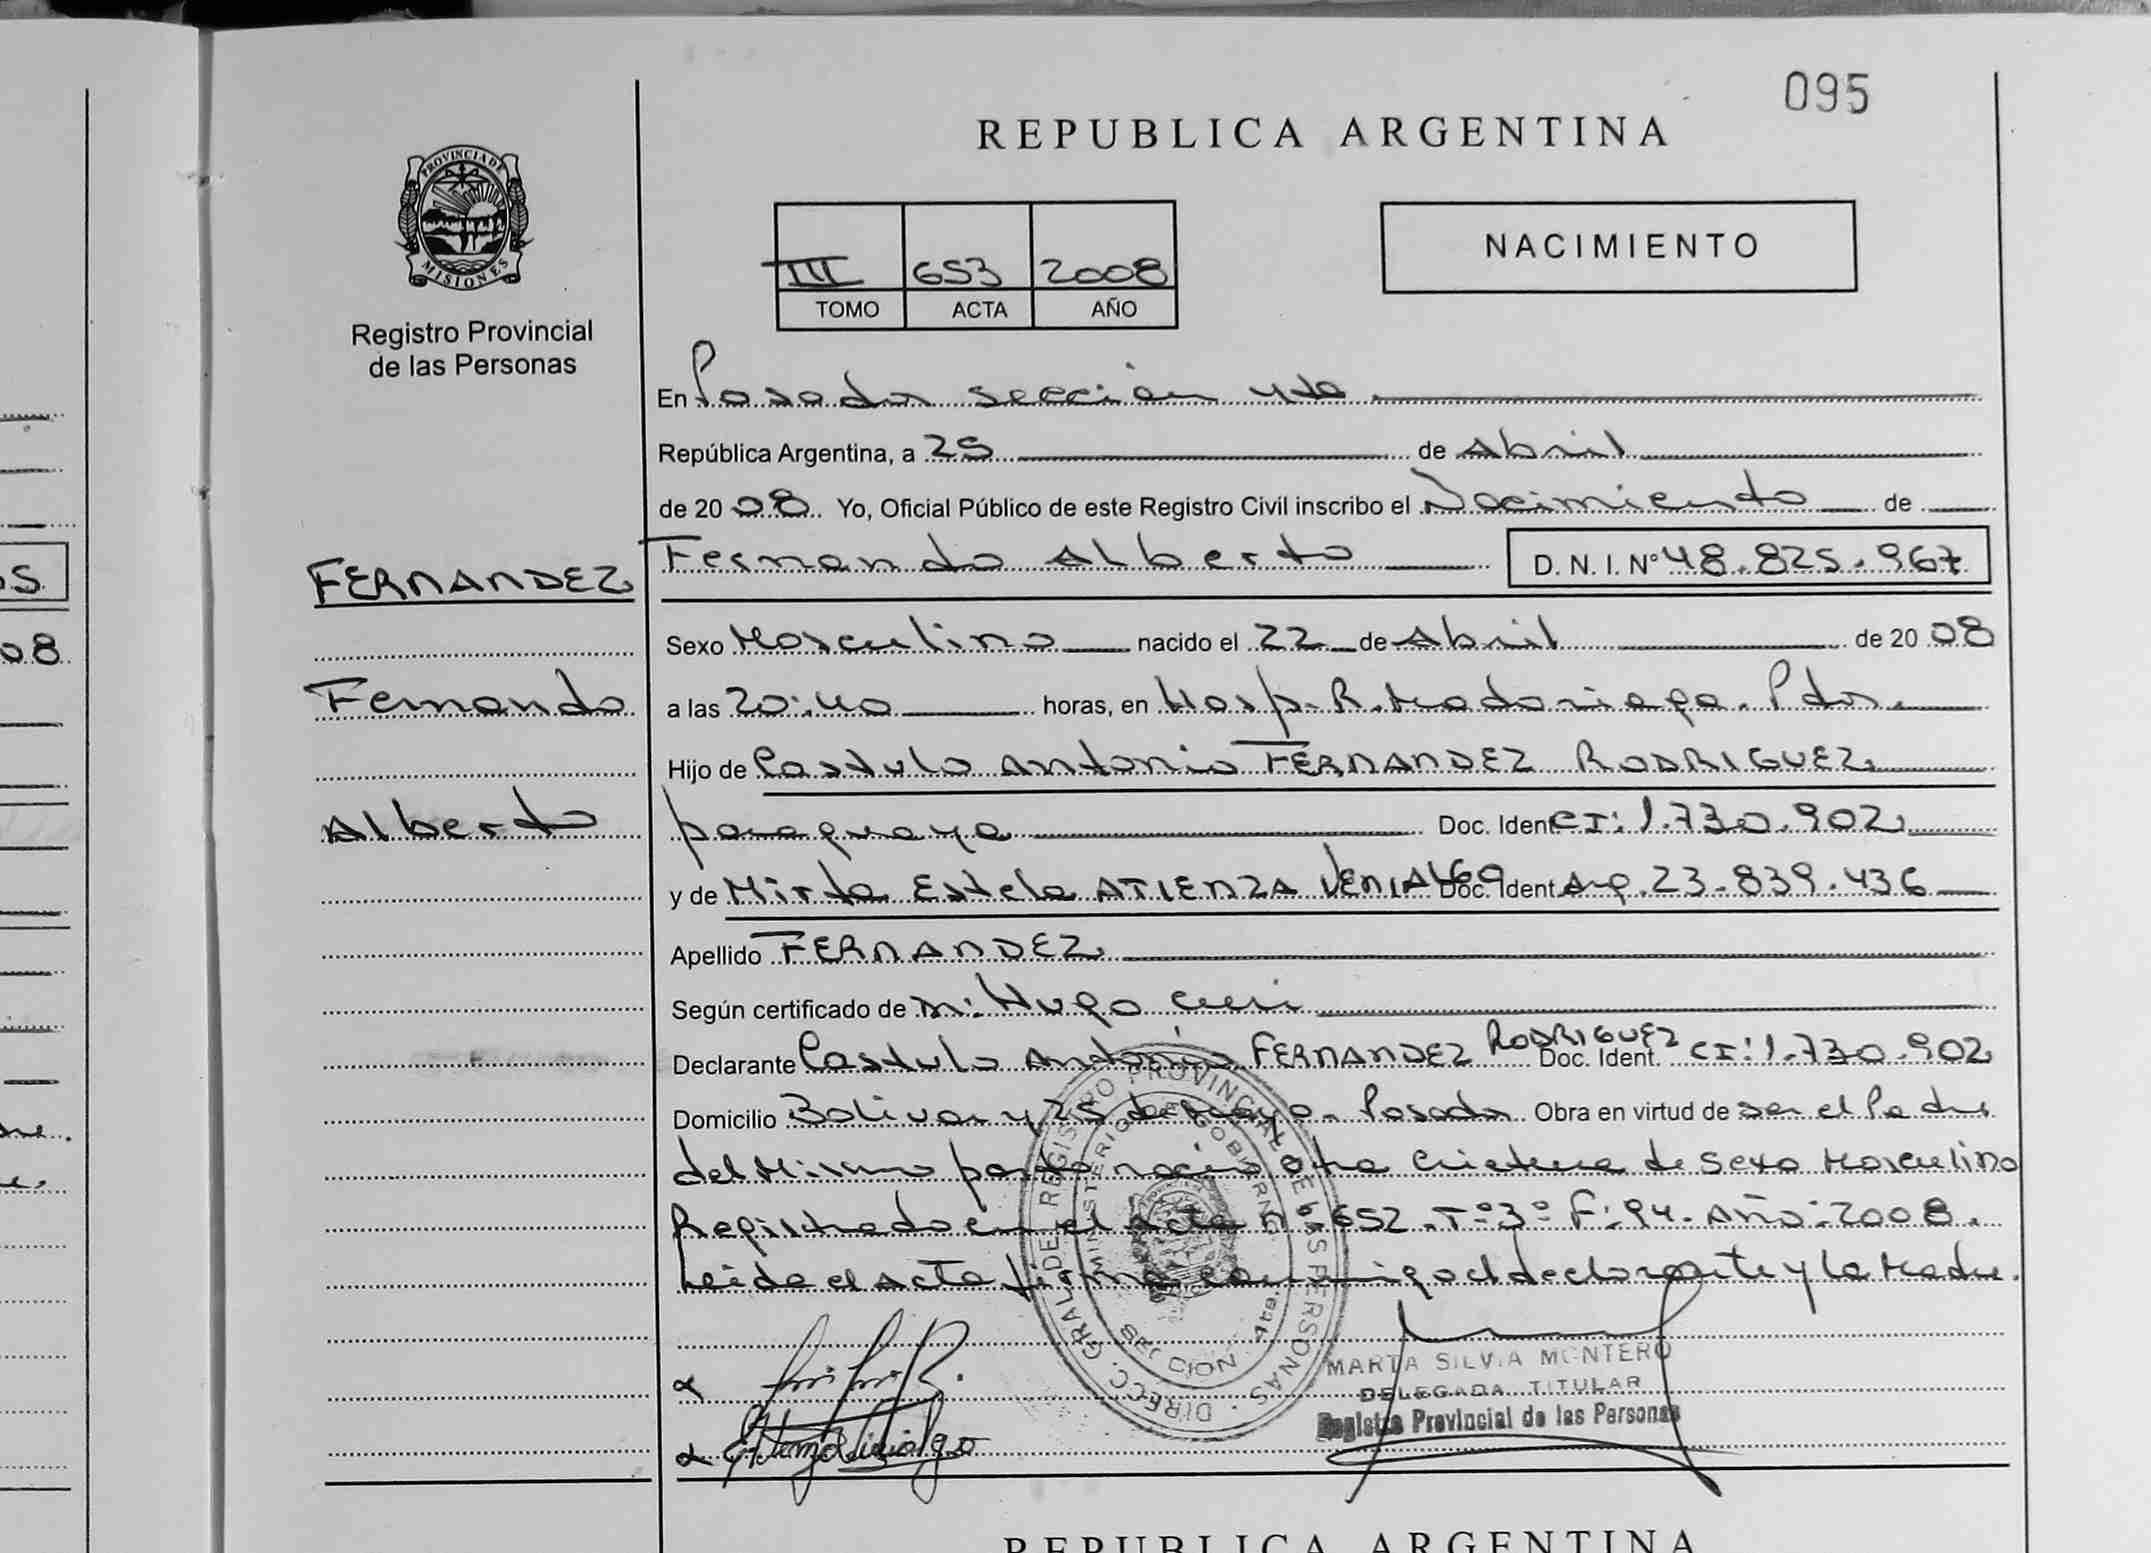 095
REPUBLICA ARGENTINA
PROVINCIA DE
MISIONES
Registro Provincial
de las Personas
III 653 2008
TOMO ACTA AÑO
NACIMIENTO
En Posadas sección 4ta
República Argentina, a 25 de Abril
de 2008. Yo, Oficial Público de este Registro Civil inscribo el Nacimiento de
FERNANDEZ Fernando Alberto D. N. I. N° 48.825.967
Sexo Masculino nacido el 22 de Abril de 2008
Fernando a las 20:40 horas, en Hosp. R. Madariaga. Pdas.
Hijo de Castulo Antonio FERNANDEZ RODRIGUEZ
Alberto paraguaya Doc. Ident CI: 1.730.902
y de Mirta Estela ATIENZA VENIALGO Doc. Ident. Arg. 23.839.436
Apellido FERNANDEZ
Según certificado de m: Hugo
Declarante Castulo Antonio FERNANDEZ RODRIGUEZ Doc. Ident. CI: 1.730.902
Domicilio Bolivar y 25 de Mayo - Posadas Obra en virtud de ser el Padre
del Mismo parto nació otra criatura de sexo Masculino
Registrado en el acta n° 652 T°3° F: 94. Año: 2008.
Leida el acta firma conmigo el declarante y la Madre.
DIRECC. GRAL. DE REGISTRO PROVINCIAL DE LAS PERSONAS
MINISTERIO DE GOBIERNO
MARTA SILVIA MONTERO
DELEGADA TITULAR
Registro Provincial de las Personas
REPUBLICA ARGENTINA
08